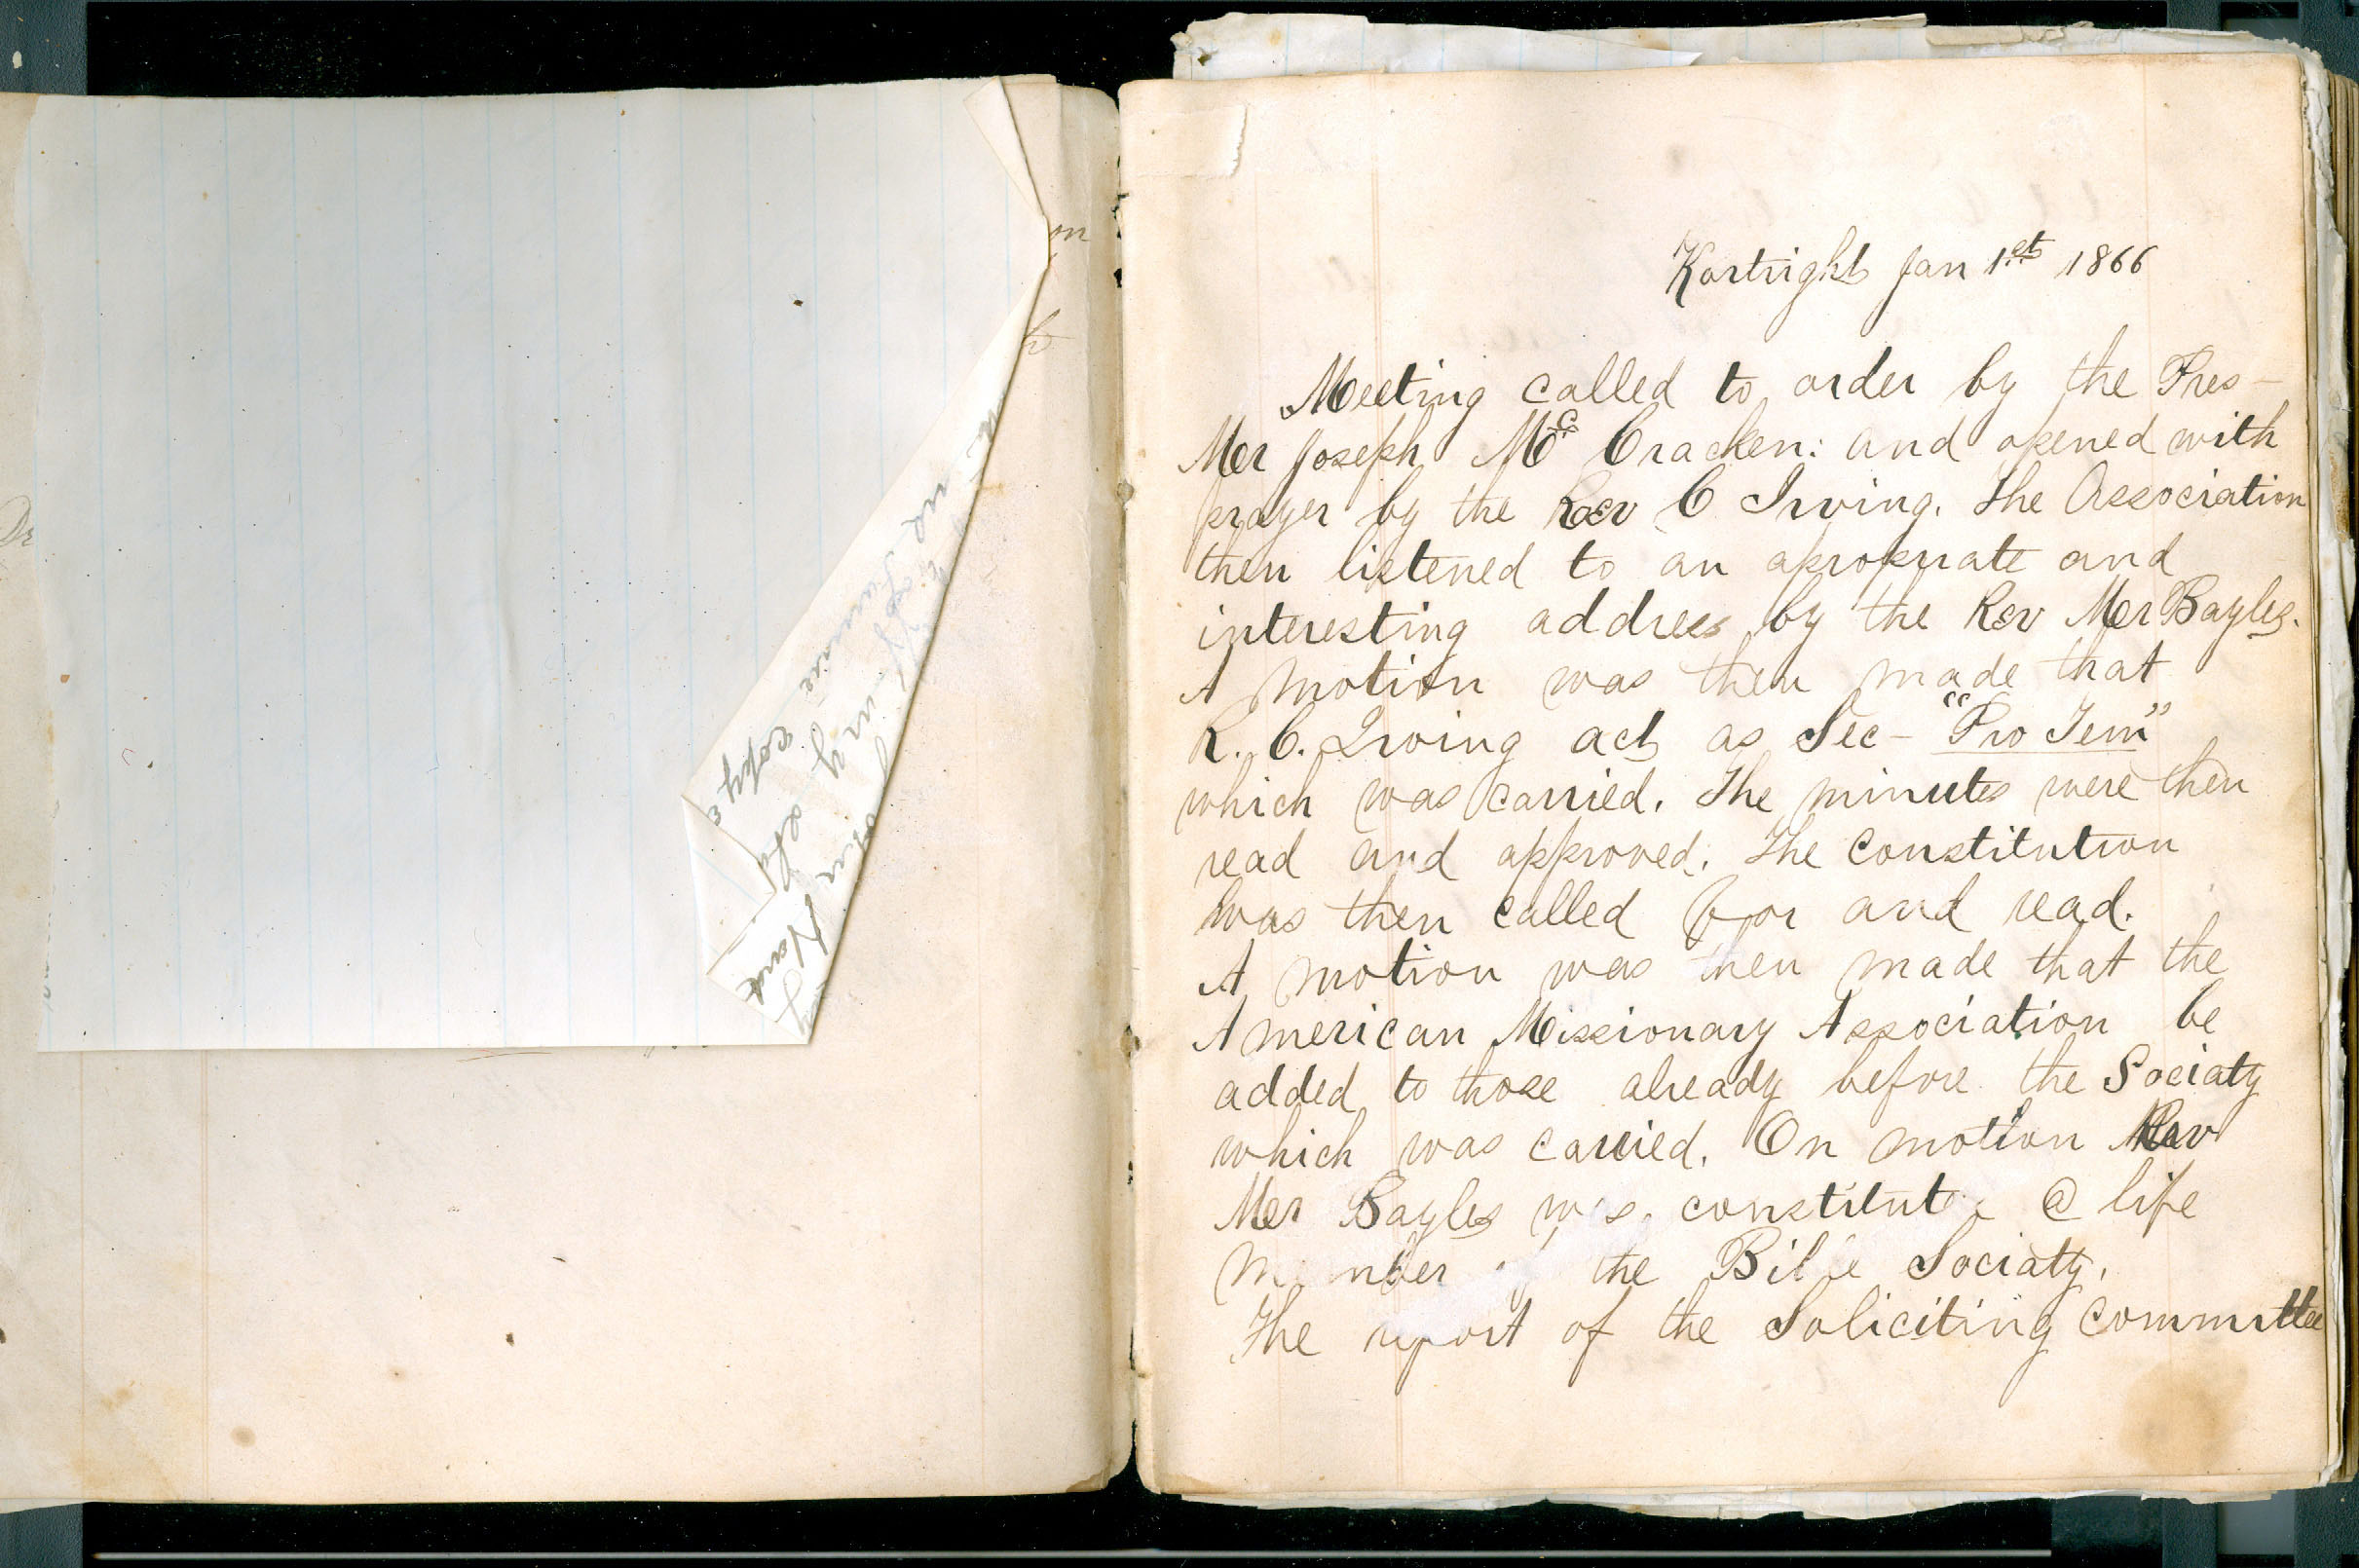 Kortright Jan 1st 1866
Meeting called to order by the Pres-
Mer Joseph Mc Cracken: and opened with
prayer by the Rev C Irving. The Association
then listened to an apropriate and
interesting address by the Rev Mer Bayles.
A motion was then made that
R. C. Irving act as Sec- "Pro Tem"
which was carried. The minutes were then
read and approved. The Constitution
was then called for and read.
A motion was then made that the
American Missionary Association be
added to those already before the Sociaty
which was carried. On motion Rev
Mer Bayles was constitute @ life
member the Bible Sociaty.
The report of the Soliciting committee
copy
Nand
on